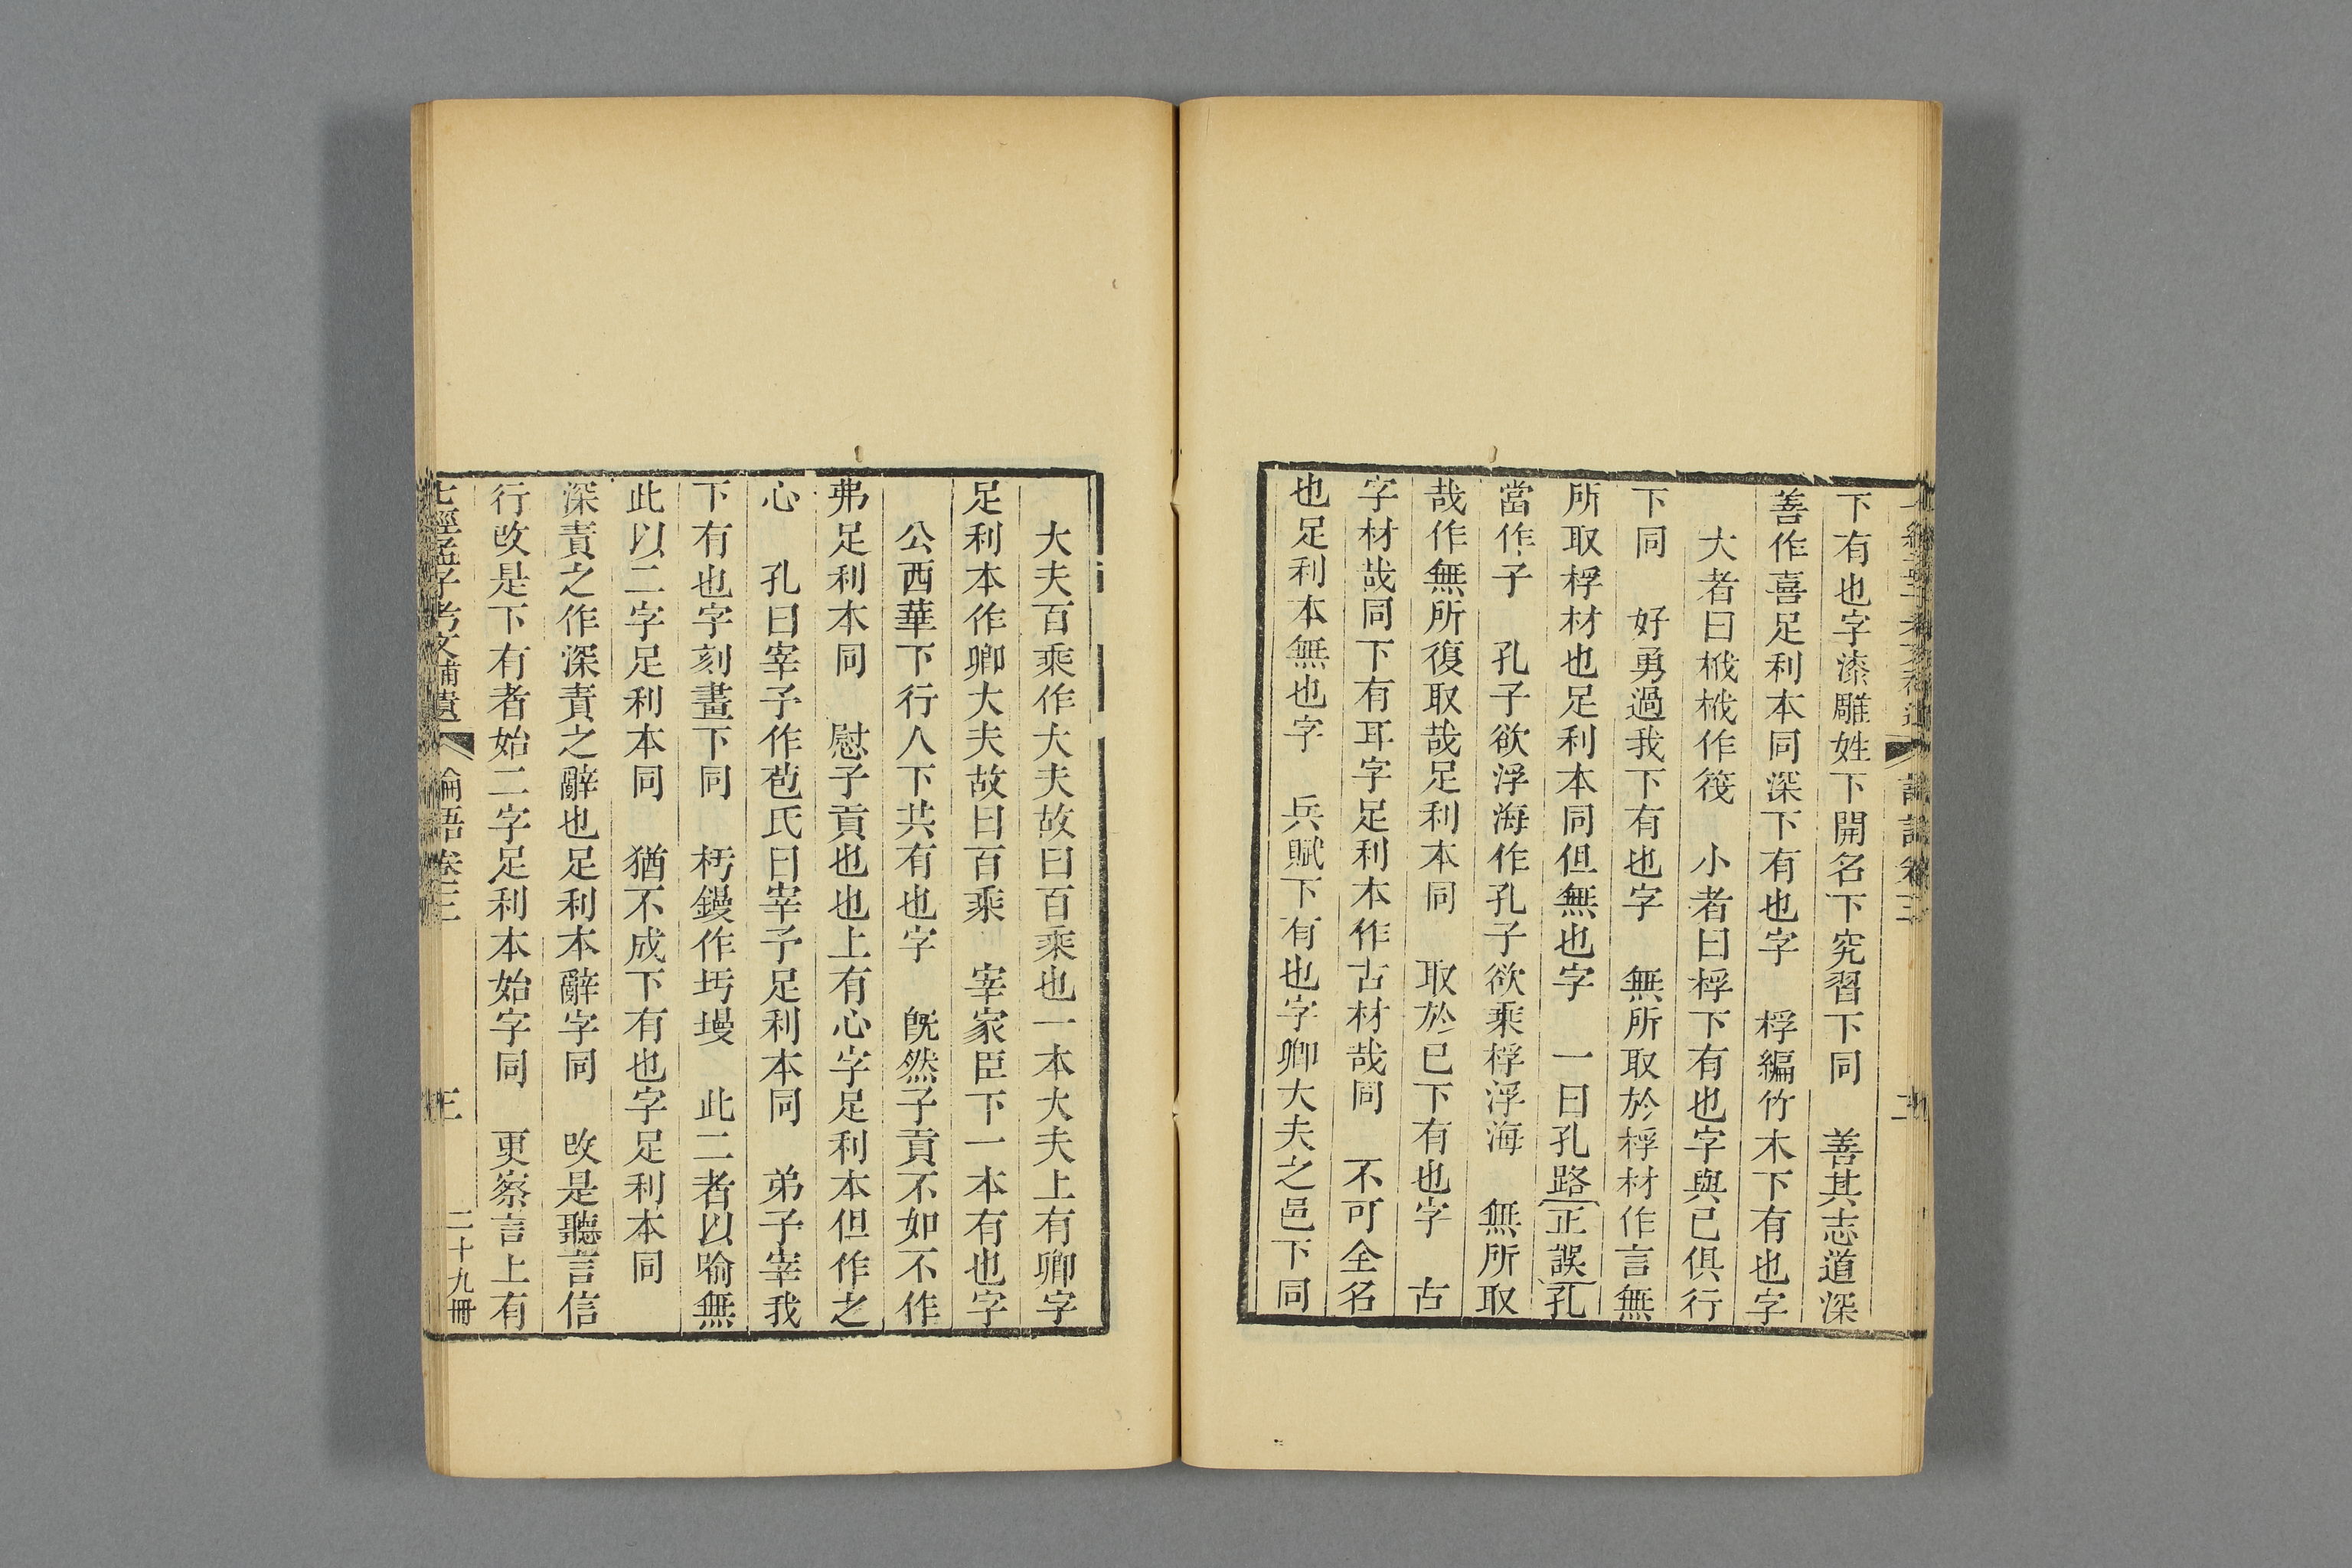 下有也字漆雕姓下開名下究習下同　善其志道深
善作喜足利本同深下有也字　桴編竹木下有也字
大者曰栰栰作筏　小者曰桴下有也字與己俱行
下同　好勇過我下有也字　無所取於桴材作言無
所取桴材也足利本同但無也字　一曰孔路正誤孔
當作子　孔子欲浮海作孔子欲乘桴浮海　無所取
哉作無所復取哉足利本同　取於已下有也字　古
字材哉同下有耳字足利本作古材哉同　不可全名
也足利本無也字　兵賦下有也字卿大夫之邑下同
大夫百乘作大夫故曰百乘也一本大夫上有卿字
足利本作卿大夫故曰百乘　宰家臣下一本有也字
公西華下行人下共有也字　旣然子貢不如不作
弗足利本同　慰子貢也也上有心字足利本但作之
心　孔曰宰予作苞氏曰宰予足利本同　弟子宰我
下有也字刻畫下同　杇鏝作圬墁　此二者以喻無
此以二字足利本同　猶不成下有也字足利本同
深責之作深責之辭也足利本辭字同　改是聽言信
行改是下有者始二字足利本始字同　更察言上有
七經孟子考文補遺　論語卷三　三　二十九冊